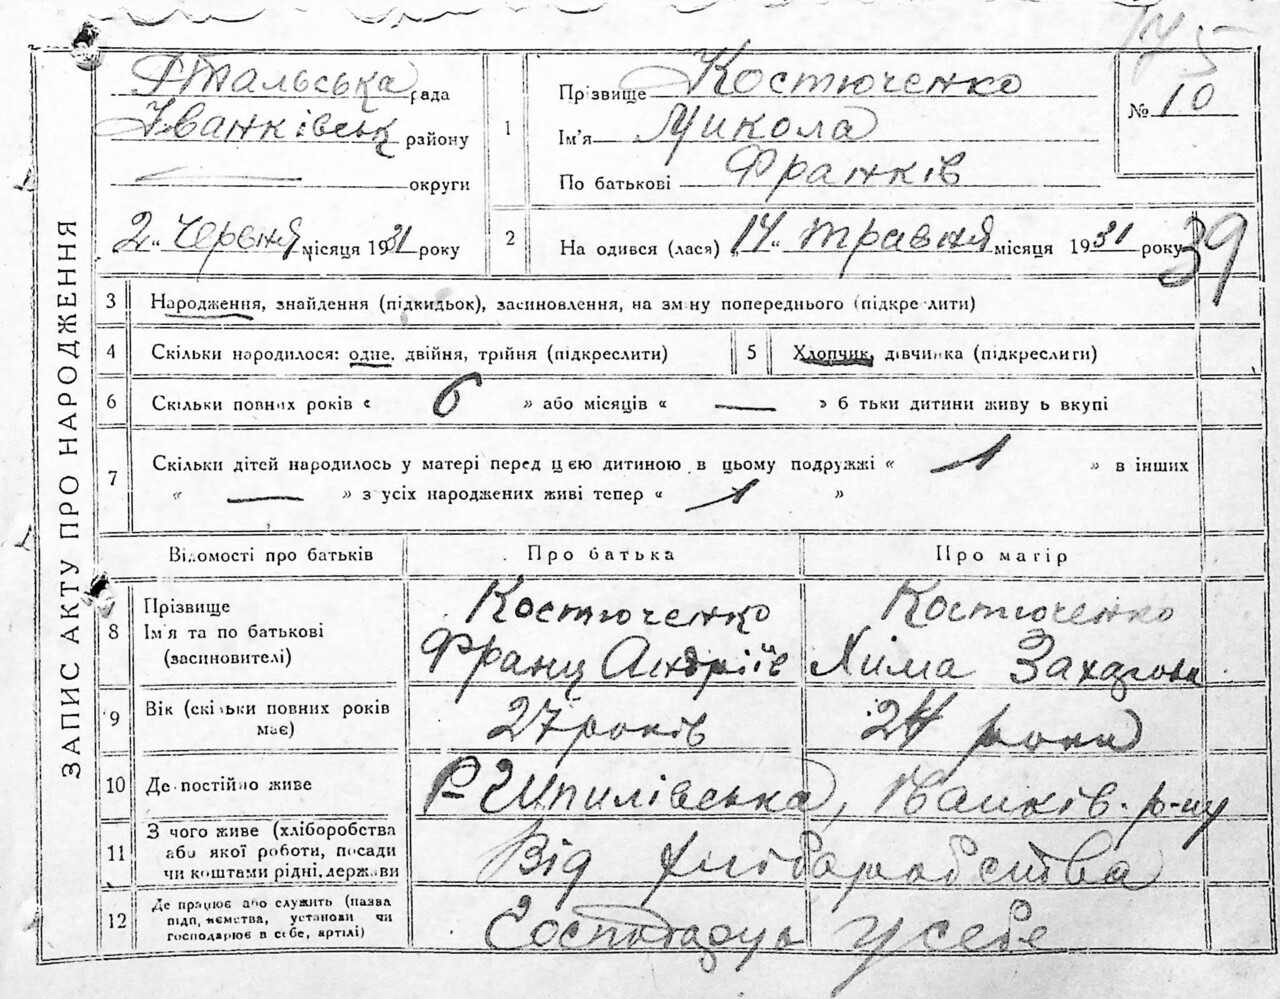 175
Тальська рада
Іванківськ району
округи
2 " Червня місяця 1931 року
1
Прізвище Костюченко
Ім'я Микола
По батькові Франків
№ 10
2
На одився (лася) 14 " травня місяця 1931 року
39
ЗАПИС АКТУ ПРО НАРОДЖЕННЯ
3 Народження, знайдення (підкидьок), засиновлення, на зміну попереднього (підкре лити)
4 Скільки народилося: одне, двійня, трійня (підкреслити)
5 Хлопчик, дівчинка (підкреслити)
6 Скільки повних років « 6 » або місяців « — » б тьки дитини живу ь вкупі
7 Скільки дітей народилось у матері перед цією дитиною в цьому подружжі « 1 » в інших
« — » з усіх народжених живі тепер « 1 »
Відомості про батьків Про батька Про матір
8 Прізвище Костюченко Костюченко
Ім'я та по батькові Франц Андріїв Хима Захарова
(засиновителі)
9 Вік (скільки повних років має) 27 років 24 роки
10 Де постійно живе Р- Шпилівська, Іванків. р-ну
11 З чого живе (хліборобства
або якої роботи, посади
чи коштами рідні, держави
Від хліборобства
12 Де працює або служить (назва
підп, ємства, установи чи
господарює в себе, артілі)
Господарує у себе